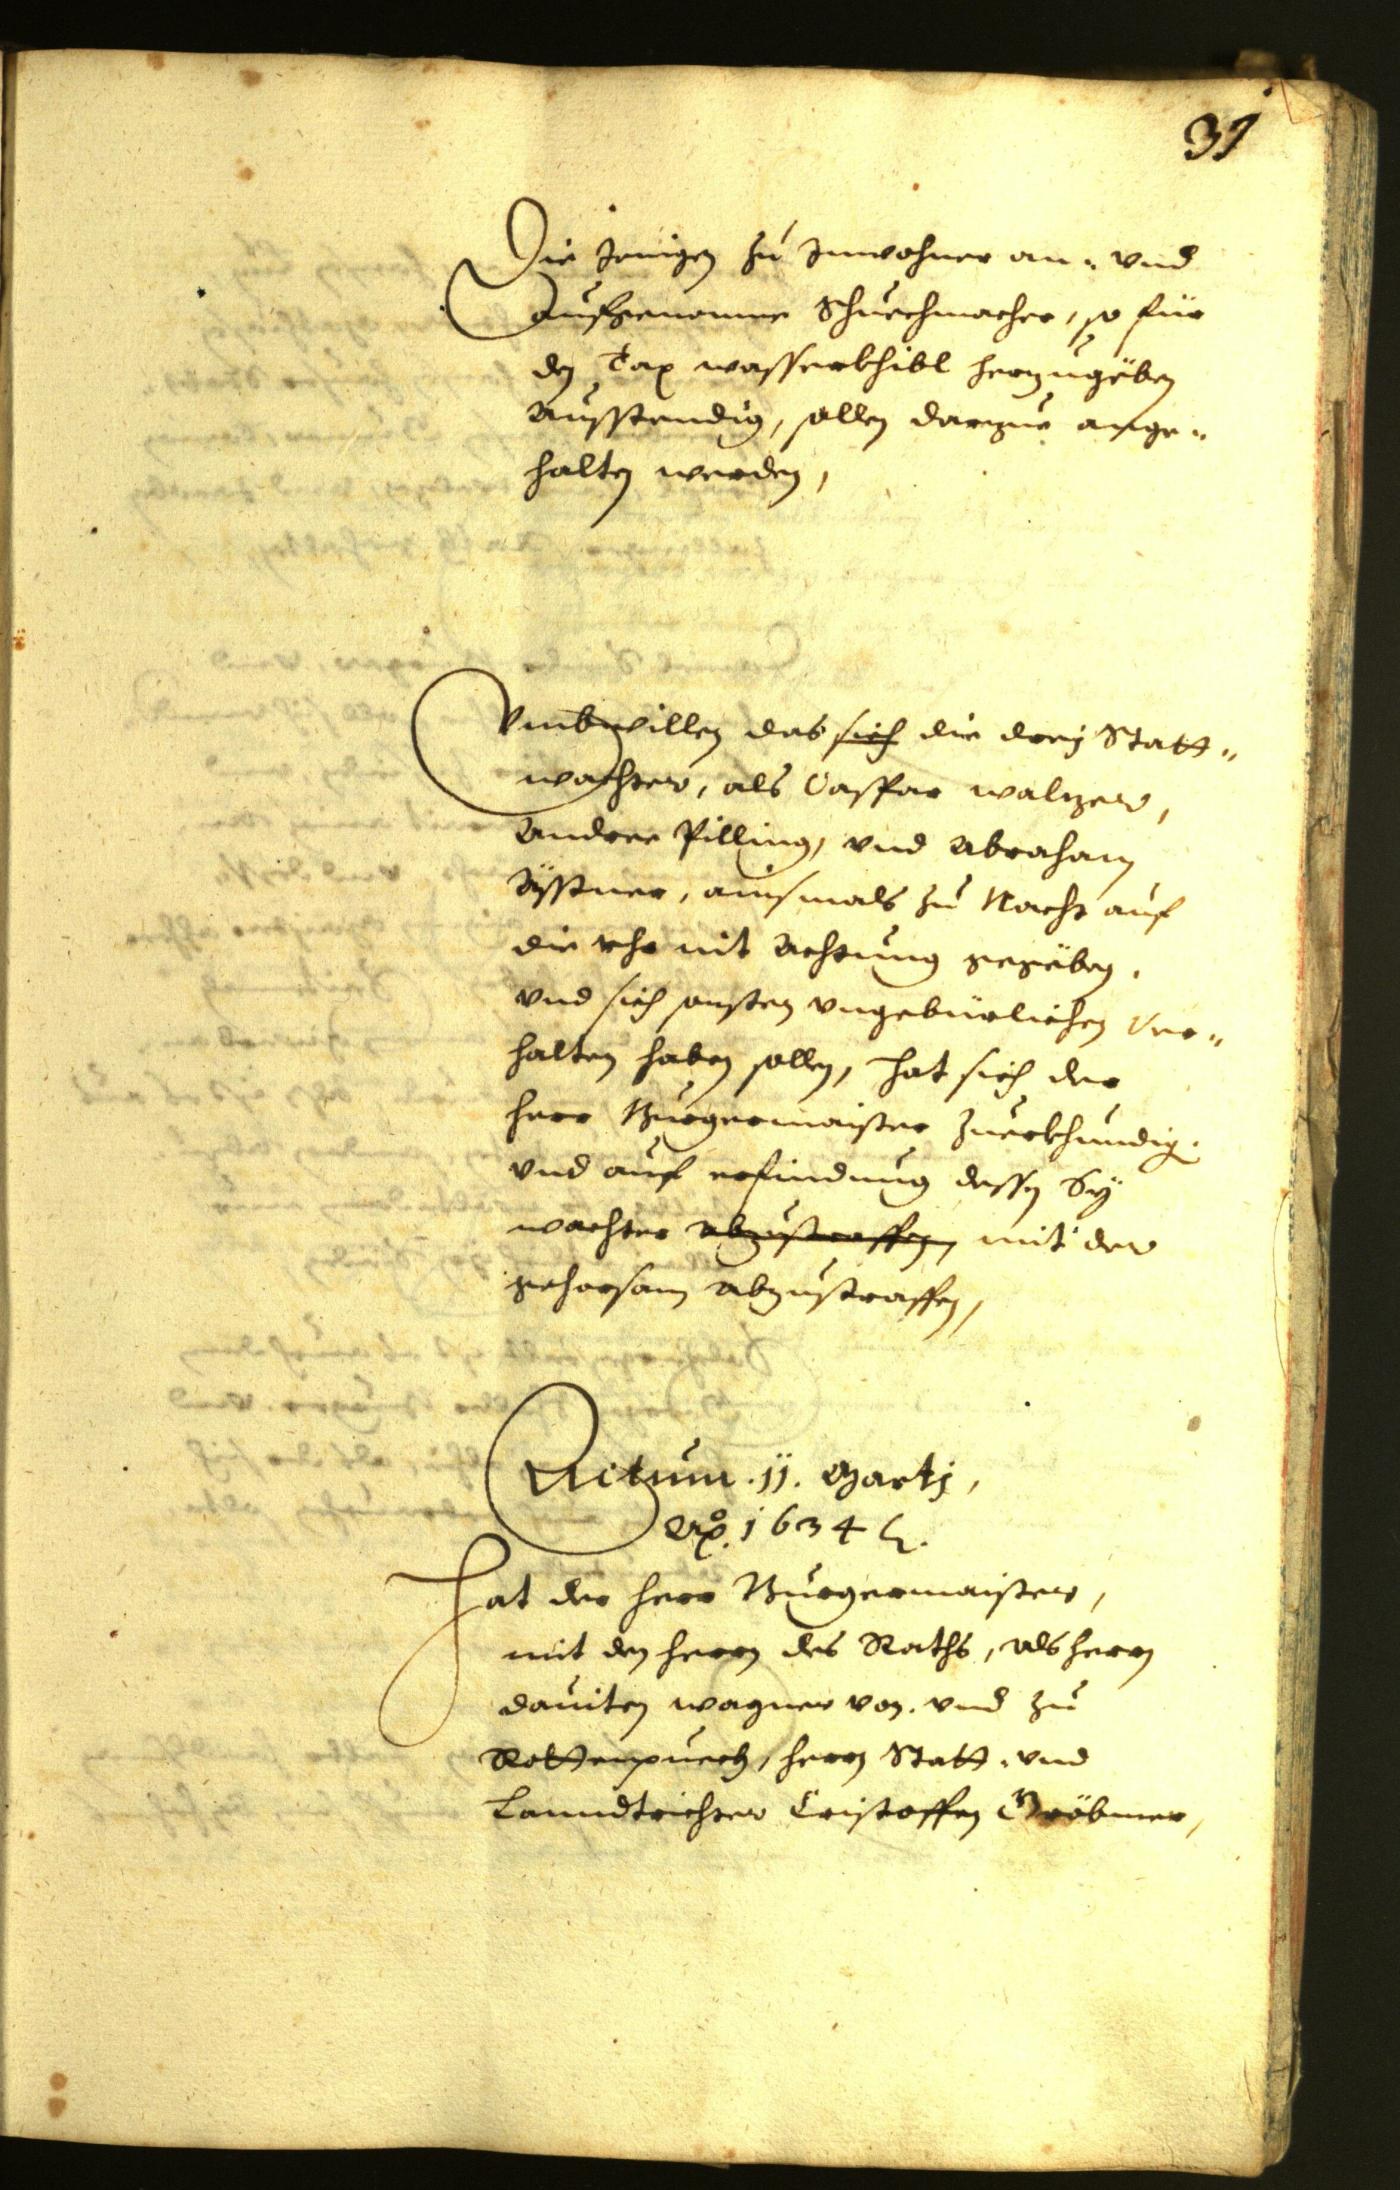 31
Die Jenigen zu Innwohner an- und
aufgenomne Schuechmacher, so für
den Tax wasserkhibl herzugeben
Ausstendig, sollen darzue ange-
halten werden,
Vmbwillen das sich die drej Statt-
wachter, als Caspar walzer,
Andree Pilling, vnd Abraham
ainsmals zu Nacht auf
die vhr nit Achtung gegeben,
vnd sich sonsten vngebürlichen Ver-
halten haben sollen, hat sich der
herr Burgermaister zuerkhundig.
vnd auf erfindung dessen Sÿ
wachter abzustraffen, mit der
gehorsam abzustraffen,
Actum .11. Martj,
Ao. 1634 &.
Hat der herr Burgermaister,
mit den herrn des Raths, als herrn
dauiten wagner von. vnd zu
Rottenpuech, herrn Statt- vnd
Lanndtrichter Cristoffen Gröbmer,